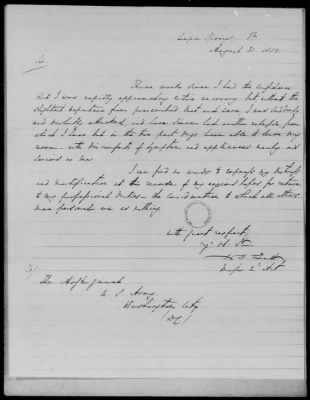 August 31. 1850.
Sir,
Three weeks since I had the confidence
that I was rapidly approaching entire recovery, but without the
slightest departure from prescribed diet and care, I was suddenly
and violently attacked, and have since had another relapse from
which I have but in the past days been able to leave my
room - with discomforts of symptoms and appliances nearly as
serious as ever
I can find no words to express my distress
and mortification at this of my hopes for return
to my professional duties - the consideration to which all others
more personal are as nothing.
With great respect,
yr. ob. St
Major 2d Art
To
The Adjt General
U. S. Army
Washington City
(D.C.)